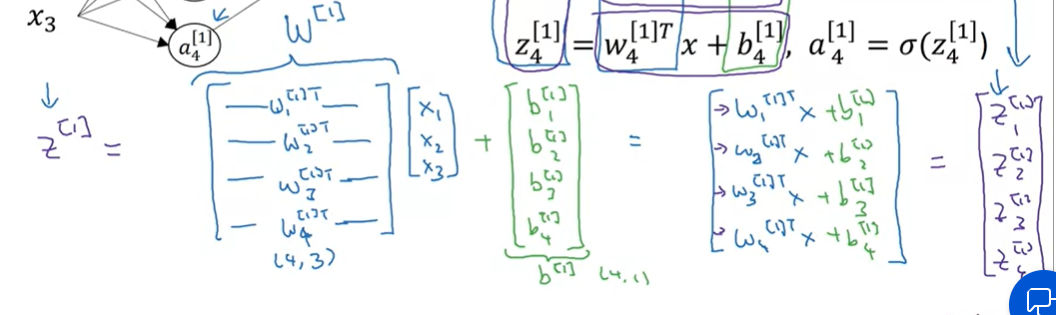 x₃
a₄^[1]
W^[1]
z₄^[1] = w₄^[1]T x + b₄^[1], a₄^[1] = σ(z₄^[1])
z^[1] = [ — w₁^[1]T — ; — w₂^[1]T — ; — w₃^[1]T — ; — w₄^[1]T — ] [ x₁ ; x₂ ; x₃ ] + [ b₁^[1] ; b₂^[1] ; b₃^[1] ; b₄^[1] ] = [ → w₁^[1]T x + b₁^[1] ; → w₂^[1]T x + b₂^[1] ; → w₃^[1]T x + b₃^[1] ; → w₄^[1]T x + b₄^[1] ] = [ z₁^[1] ; z₂^[1] ; z₃^[1] ; z₄^[1] ]
(4,3)
b^[1] (4,1)